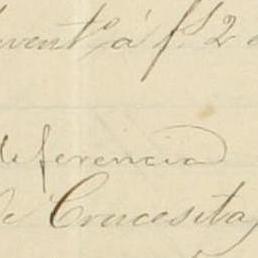 invent.º á f.s 2
deferencia
de Crucesita,